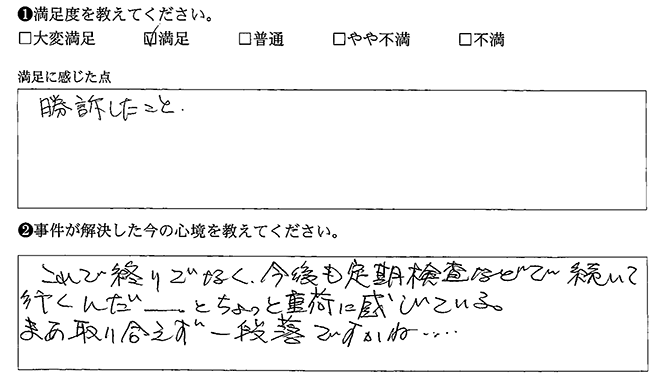 ❶満足度を教えてください。
□大変満足 ☑満足 □普通 □やや不満 □不満
満足に感じた点
勝訴したこと.
❷事件が解決した今の心境を教えてください。
これで終りでなく、今後も定期検査などで続いて
行くんだ――。とちょっと重荷に感じている。
まあ取り合えず一段落ですかね‥‥